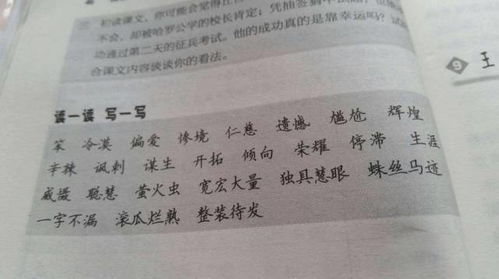 初读课文，你可能会觉得
不会，却被哈罗公学的校长肯定；凭抽签
功通过第二天的征兵考试。他的成功真的是靠幸运吗？试
合课文内容谈谈你的看法。
9 王
读一读 写一写
笨 冷漠 偏爱 惨境 仁慈 遗憾 尴尬 辉煌
辛辣 讽刺 谋生 开拓 倾向 荣耀 停滞 生涯
威慑 聪慧 萤火虫 宽宏大量 独具慧眼 蛛丝马迹
一字不漏 滚瓜烂熟 整装待发